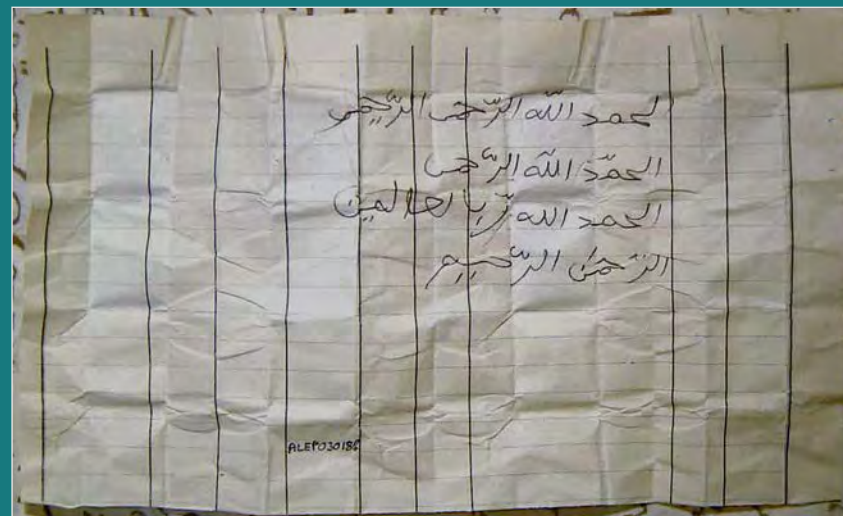 لحمد الله الرّحمن الرّحيم
الحمّد الله الرّحمن
الحمد الله رّبا لعالمين
الرّحمٰن الرّحييم
ALEP030186